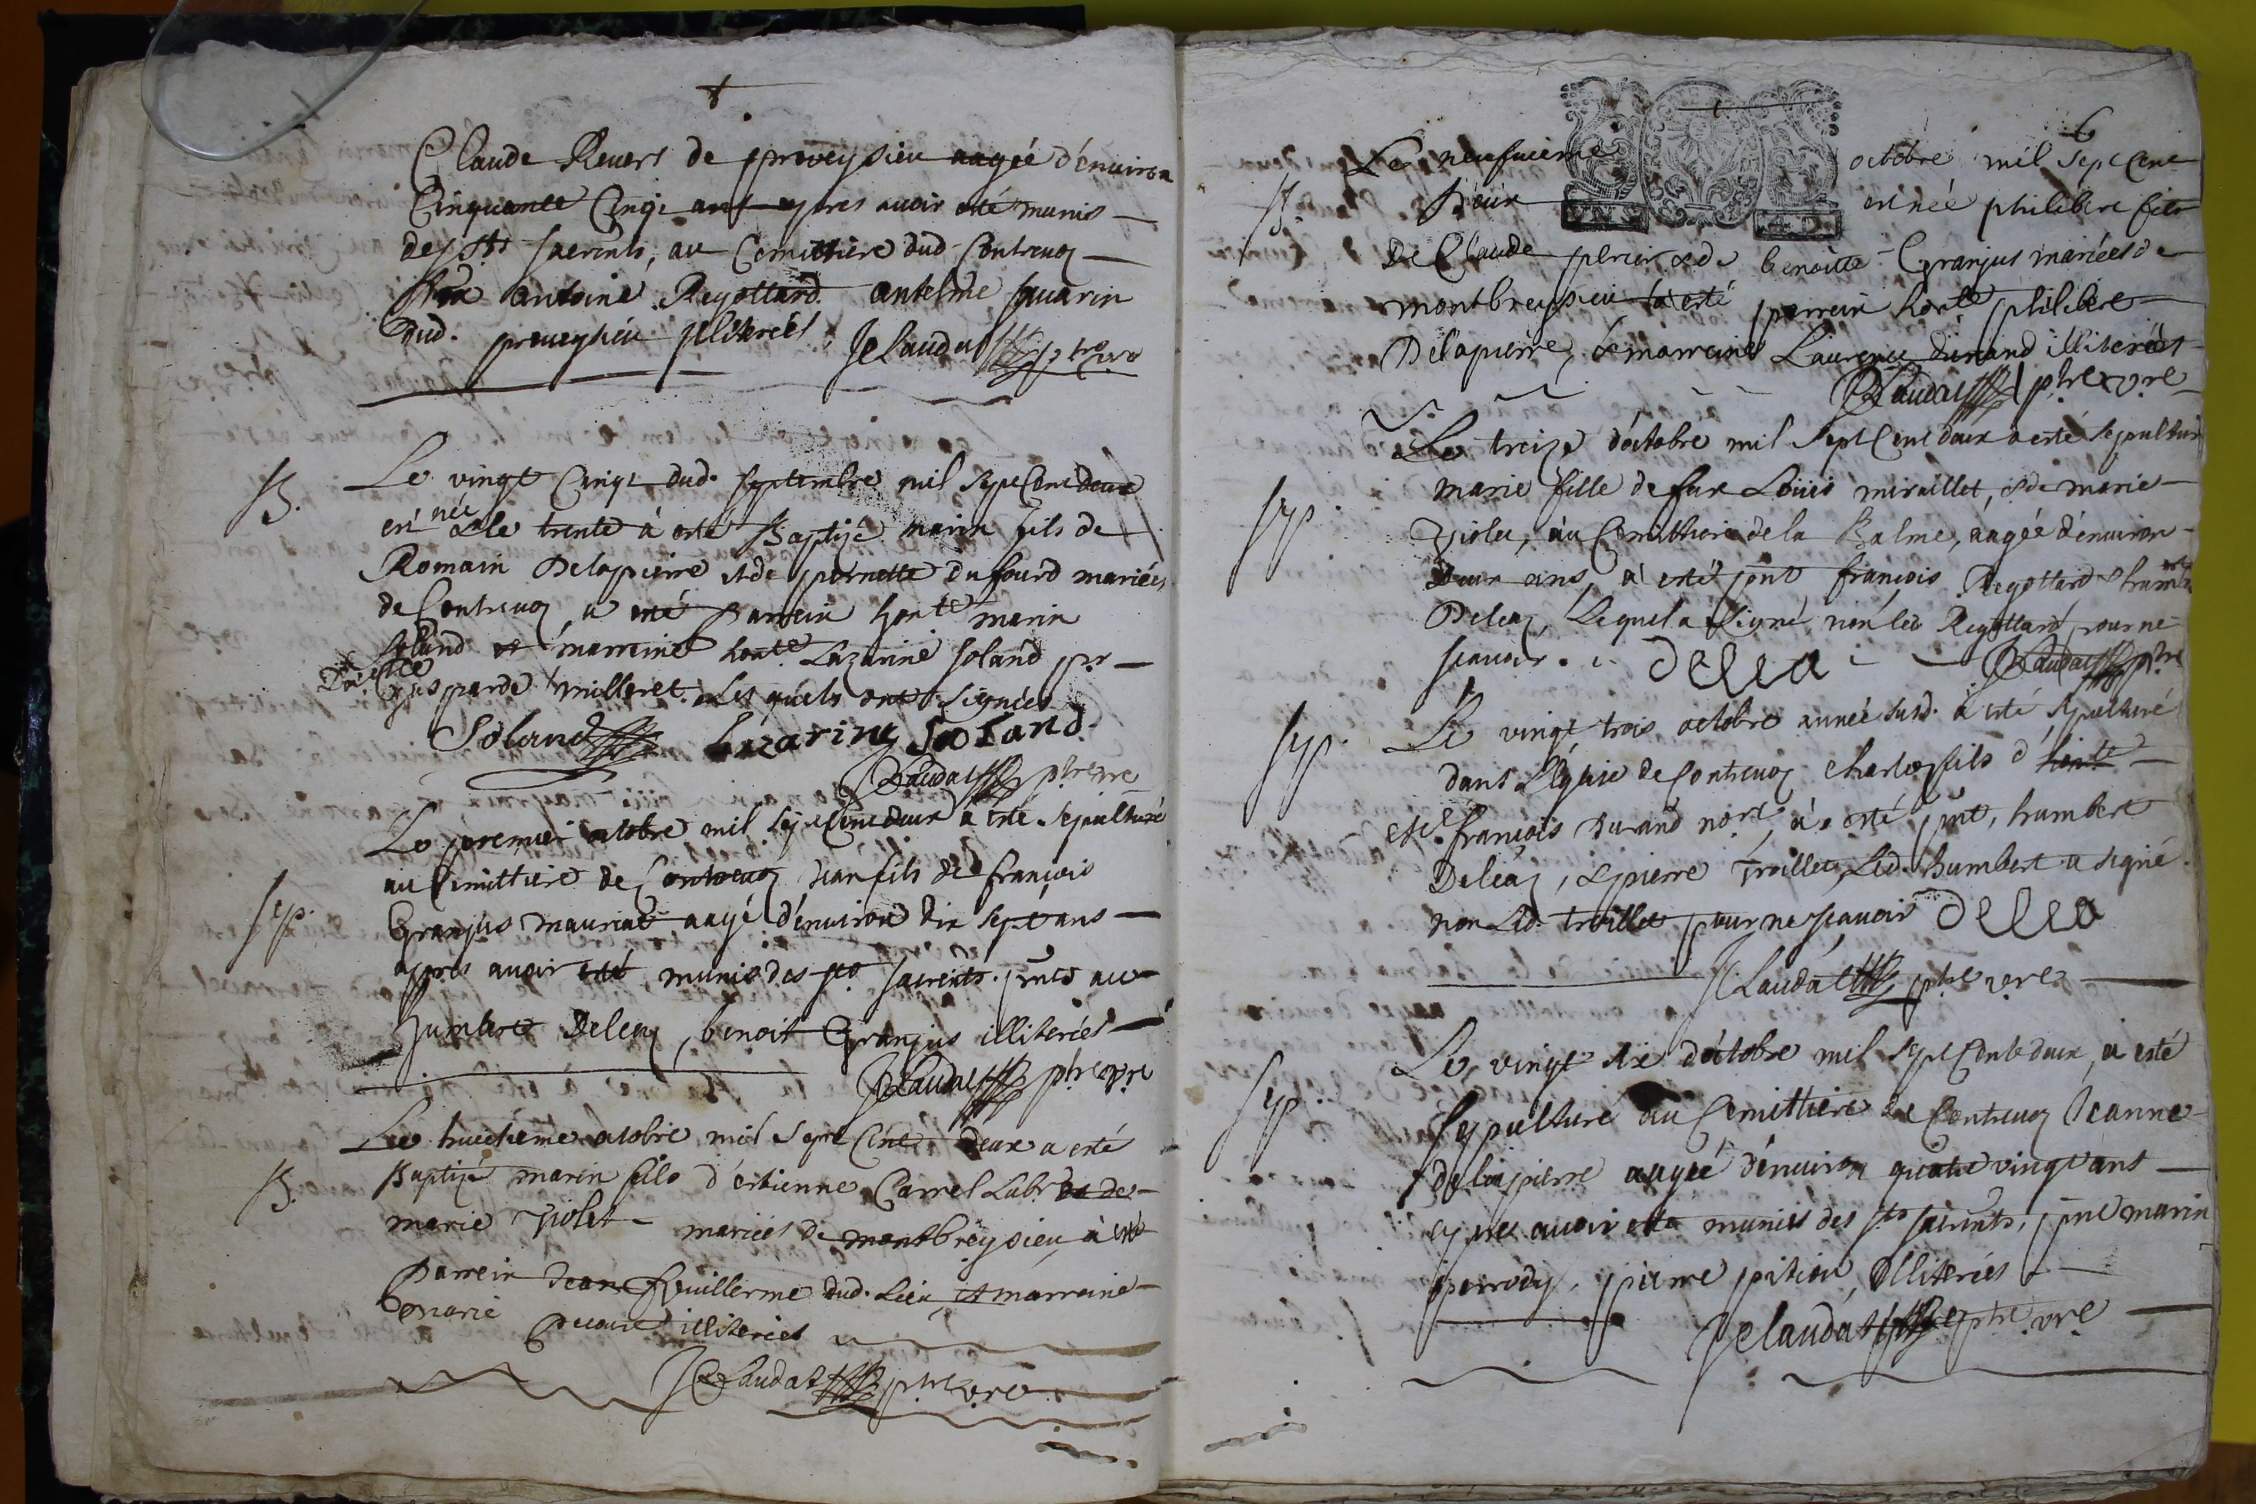 Claude Revers de proveysieu aagée d'environ
Cinquante Cinq ans apres avoir esté munis
des Sts sacrents, au Cemittiere dud. Contrevoz
antoine Regottard anthelme savarin
dud. proveysieu illiterées JClaudat ptre vre
B. Le vingt Cinqt dud. septembre mil sept Cent deux
est née & le trente à esté Baptisé marin fils de
Romain Delapierre et de pernette dufourd mariées
de Contrevoz, a esté Parrein honte marin
soland et marreine honte Lazarine soland pr
gasparde milleret. Lesquels ont signées
Soland Lazarine Soland
JClaudat ptre vre
sep. Le premier octobre mil sept Cent deux à esté sepulturé
au Cemittiere de Contrevoz Jean fils de françois
Granjus mauriat aagé d'environ dix sept ans
apres avoir esté munis des sts sacrents. pnts au
humbert Deleaz, benoit Granjus illiterées
JClaudat ptre vre
B. Le huictieme octobre mil sept Cent deux a esté
Baptizé marin fils d'estienne Carrel Labr et de
marie violet mariées de montbreysieu, à esté
Parrein Jean Guillerme dud. Lieu et marreine
marie illiterées
JClaudat ptre vre
6
Le neufuieme octobre mil sept Cent
B. deux est née philibere fils
De Claude perier & de benoitte Granjus mariées de
montbreysieu a esté parrein honte philibere
Delapierre, & marreine Laurence durand illiterées
JClaudat ptre vre
Le treize d'octobre mil sept Cent deux a esté sepulturé
sep. marie fille de feu Loüis miraillet, & de marie
violet, au Cemittiere de la Balme, aagée d'environ
deux ans, à esté pnt françois Regottard & humbert
Deleaz, Lequel a signé non led Regottard pour ne
scavoir. delea JClaudat ptre
sep. Le vingt trois octobre année susd. a esté sepulturé
dans L'eglise de Contrevoz charles fils d'honte
françois durand nore, à esté pnt, humbert
Deleaz, & pierre Troillet, Led. humbert a signé
non Led. troillet pour ne scavoir delea
JClaudat ptre vre
sep. Le vingt six d'octobre mil sept Cent deux, a esté
sepulturé au Cemittiere de Contrevoz Jeanne
delapierre aagée d'environ quatre vingt ans
apres avoir esté munies des sts sacrents, pnt marin
perrody, pierre pition, Illiterées
JClaudat ptre vre